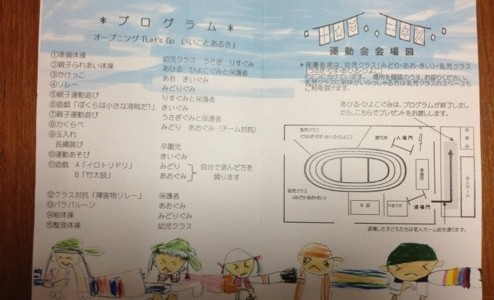 ＊プログラム＊
オープニング「Let's Go いいことあるさ」
①準備体操 幼児クラス うさぎ りすぐみ
②親子ふれあい体操 あひる・ひよこぐみと保護者
③かけっこ あお きいぐみ
④リレー みどり あおぐみ
⑤親子運動遊び りすぐみと保護者
⑥遊戯「ぼくらは小さな海賊だ！」 きいぐみ
⑦親子運動遊び うさぎぐみと保護者
⑧力くらべ みどり あおぐみ（チーム対抗）
⑨玉入れ
長縄跳び 卒園児
⑩運動あそび きいぐみ
⑪遊戯 A『イロトリドリ』 みどり 自分で選んだ方を
B『竹太鼓』 あおぐみ 踊ります
⑫クラス対抗「障害物リレー」 保護者
⑬パラバルーン あおぐみ
⑭組体操 みどりぐみ
⑮整理体操 幼児クラス
運動会会場図
＊保護者席は、幼児クラス（みどり・あお・きい）・乳児クラス
ご利用頂けます。
あひる・ひよこぐみは、プログラムが終了しま
したら、こちらでプレゼントをお渡しします。
乳児クラス
入場門
幼児クラス
（みどり・あお・きい）
本部
退場門
老人ホーム
退場した子どもたちは老人ホーム前を通ります。